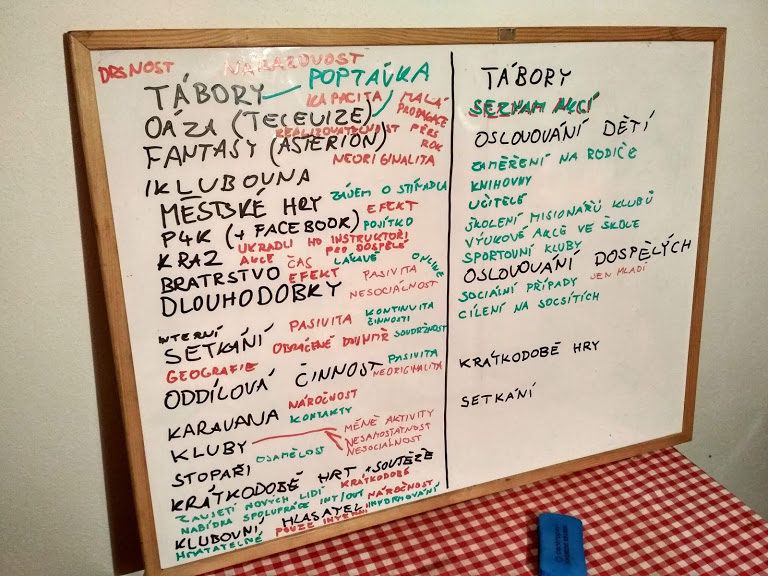 DRSNOST NÁRAZOVOST
TÁBORY — POPTÁVKA
KAPACITA MALÁ
OÁZA (TELEVIZE) PROPAGACE
REALIZOVATELNOST PERS
FANTASY (ASTERION) ROK
NEORIGINALITA
IKLUBOVNA
MĚSTSKÉ HRY ZÁJEM O STÍNADLA
P4K (+ FACEBOOK) EFEKT
POJÍTKO
UKRADLI HO INSTRUKTOŘI
KRAZ AKCE ČAS PRO DOSPĚLÉ
LÁKAVÉ ONLINE
BRATRSTVO EFEKT PASIVITA
DLOUHODOBKY NESOCIÁLNOST
INTERNÍ
SETKÁNÍ PASIVITA KONTINUITA
ČINNOSTI
OBRÁCENĚ DOVNITŘ SOUDRŽNOST
GEOGRAFIE
ODDÍLOVÁ ČINNOST PASIVITA
NEORIGINALITA
KARAVANA NÁROČNOST
KONTAKTY
KLUBY MÉNĚ AKTIVITY
NESAMOSTATNOST
NESOCIÁLNOST
STOPAŘI OSAMĚLOST
KRÁTKODOBÉ HRY + SOUTĚŽE
ZAUJETÍ NOVÝCH LIDÍ KRÁTKODOBÉ
NABÍDKA SPOLUPRÁCE INT/OUT NÁROČNOST
KLUBOVNÍ HLASATEL INFORMOVÁNÍ
HMATATELNÉ POUZE INTERNÍ
TÁBORY
SEZNAM AKCÍ
OSLOVOVÁNÍ DĚTÍ
ZAMĚŘENÍ NA RODIČE
KNIHOVNY
UČITELÉ
ŠKOLENÍ MISIONÁŘŮ KLUBŮ
VÝUKOVÉ AKCE VE ŠKOLE
SPORTOVNÍ KLUBY
OSLOVOVÁNÍ DOSPĚLÝCH
SOCIÁLNÍ PŘÍPADY JEN MLADÍ
CÍLENÍ NA SOCSÍTÍCH
KRÁTKODOBÉ HRY
SETKÁNÍ